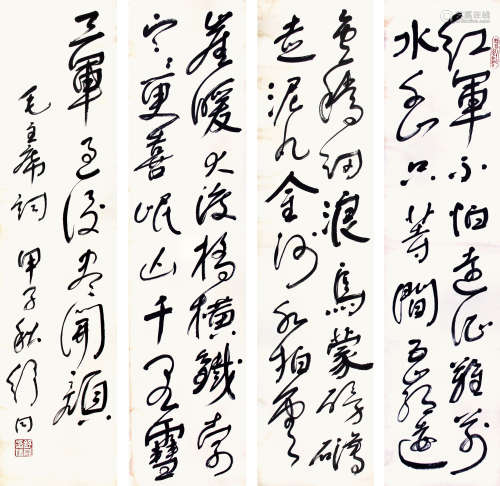 紅軍不怕遠征難萬
水千山只等閒五嶺逶
迤騰細浪烏蒙磅礴
走泥丸金沙水拍雲
崖暖大渡橋橫鐵索
寒更喜岷山千里雪
三軍過後盡開顏
毛主席詞 甲子秋 舒同